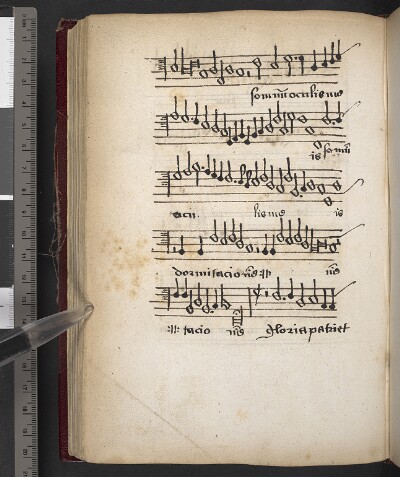 somnū oculis me
is somū
ocu. lis me is
dormitacionē :||: nē
:||: tacio nē gloria patri et